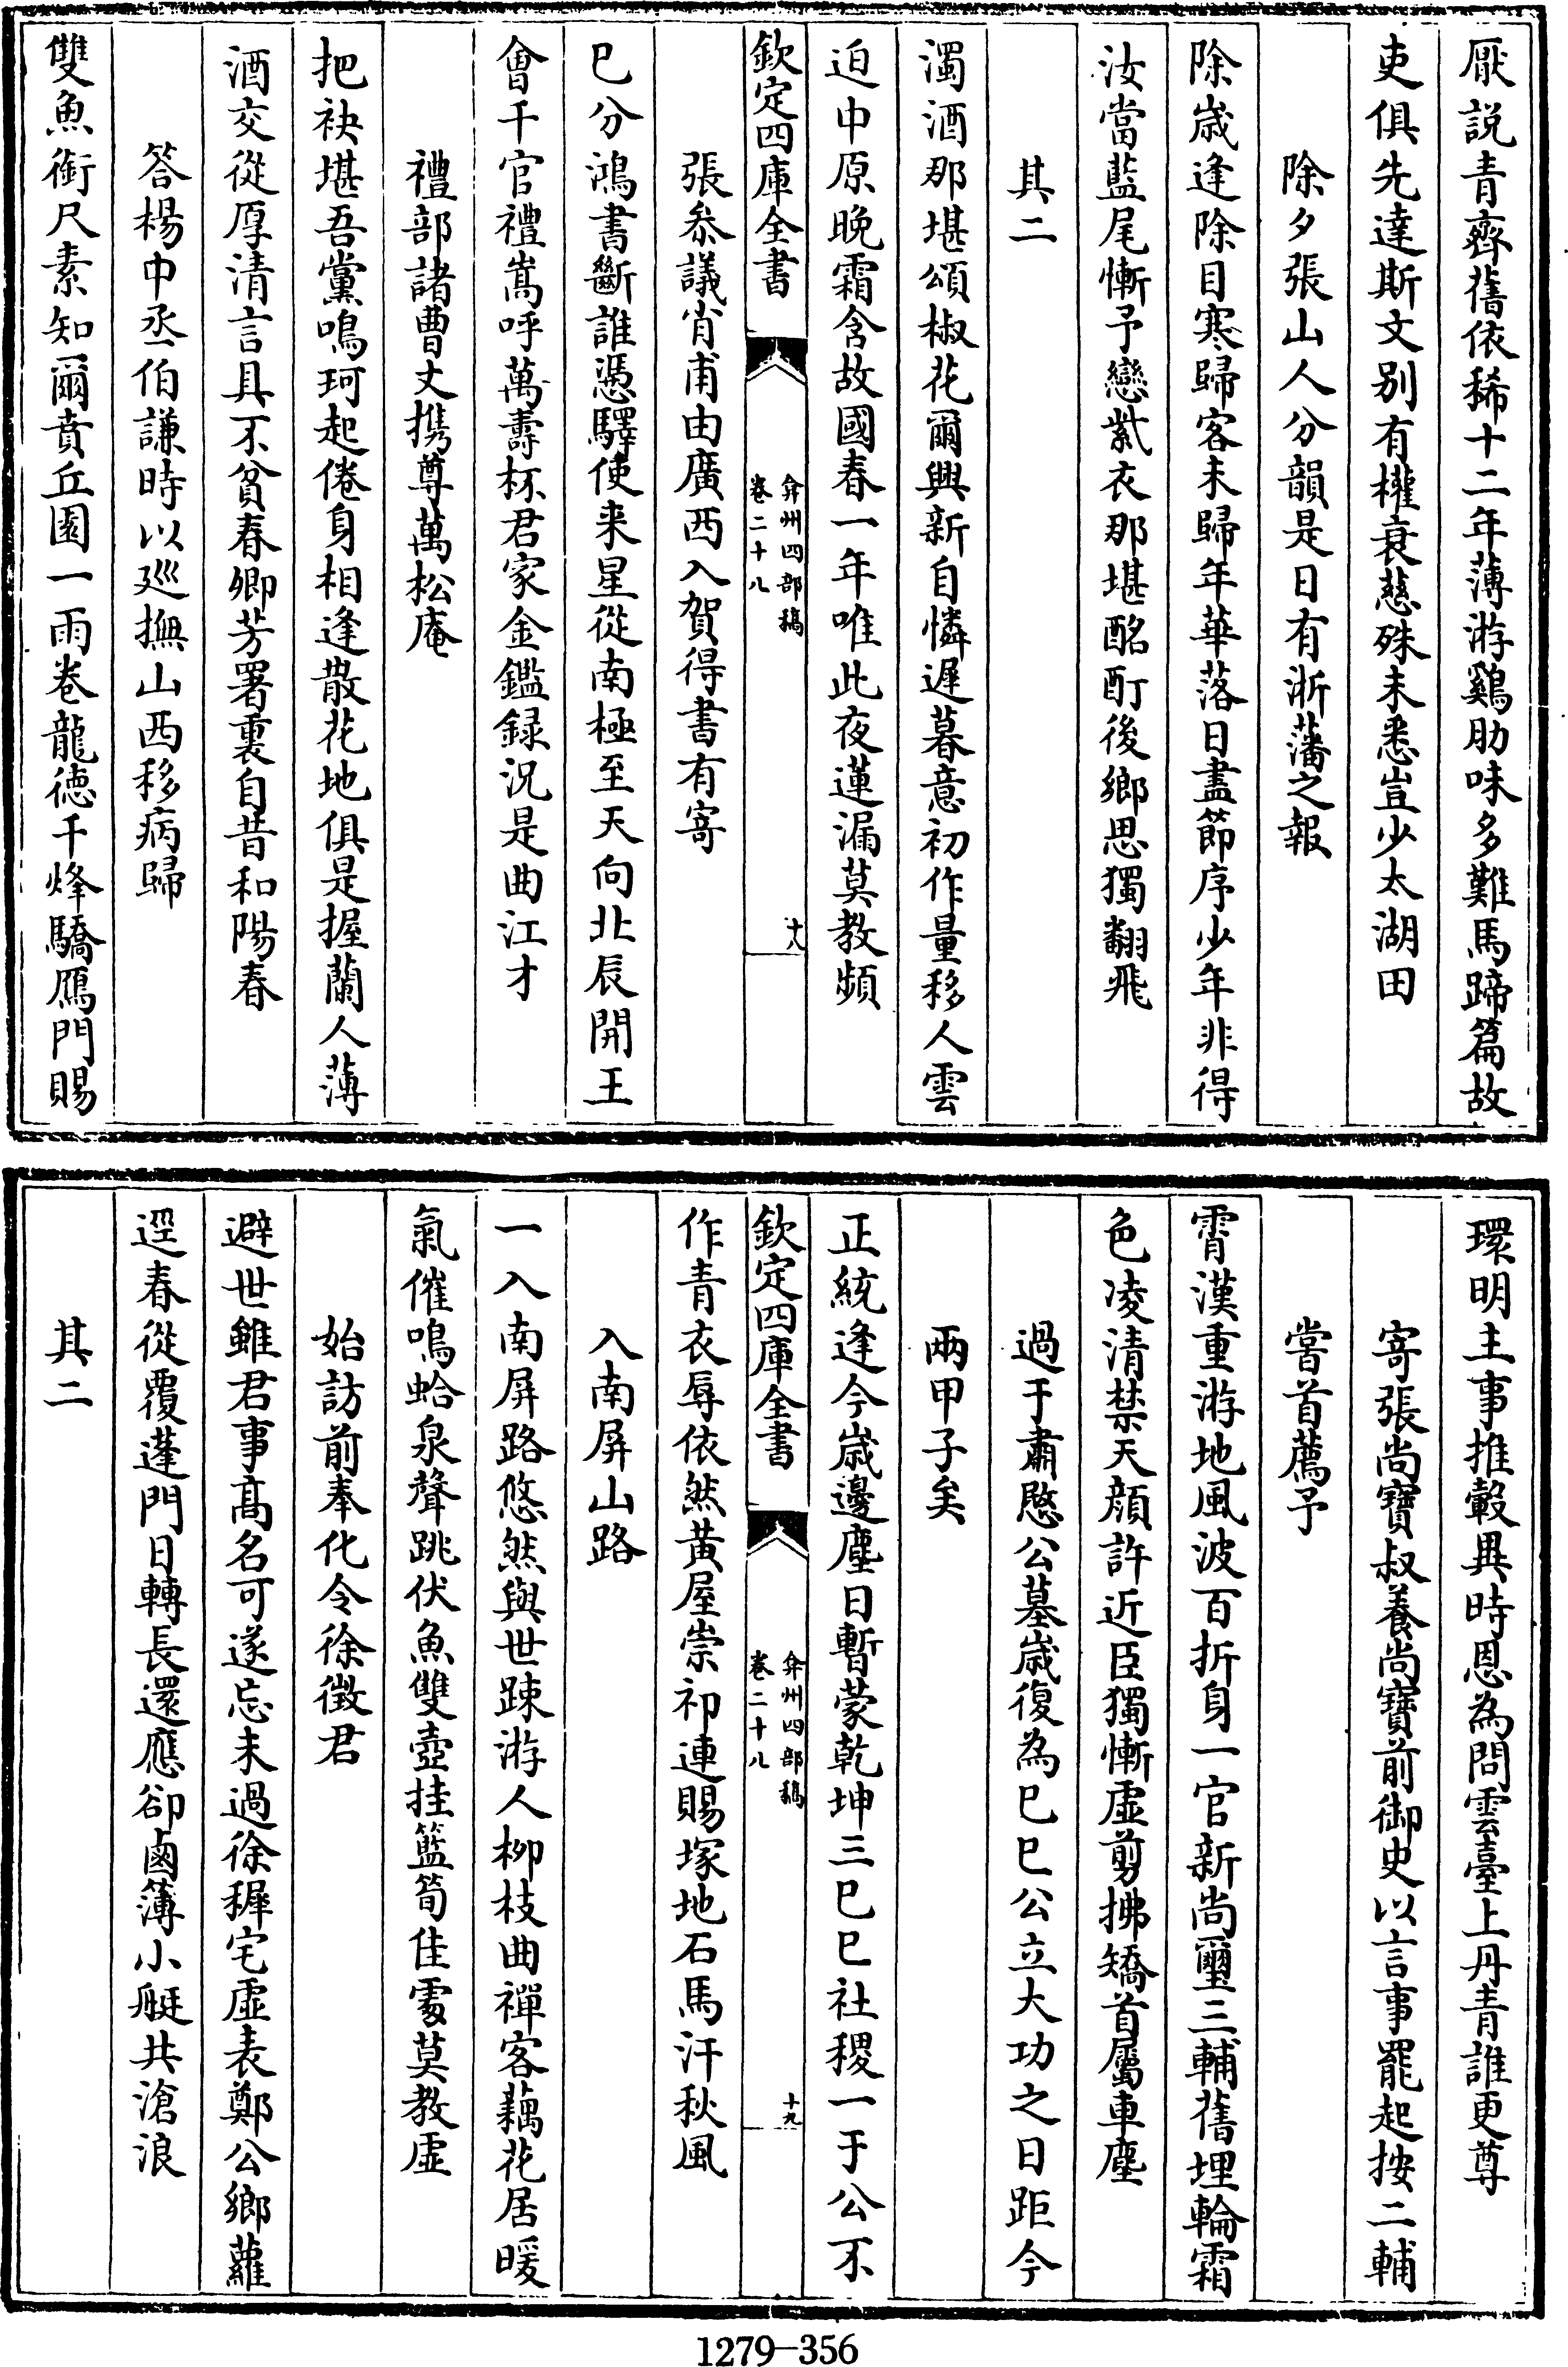 厭説青齊舊依稀十二年薄游鷄肋味多難馬蹄篇故
吏俱先達斯文别有權衰慈殊未悉豈少太湖田
除夕張山人分韻是日有浙藩之報
除歳逢除目寒歸客未歸年華落日盡節序少年非得
汝當藍尾慚予戀紫衣那堪酩酊後鄉思獨翻飛
其二
濁酒那堪頌椒花爾興新自憐遲暮意初作量移人雲
迫中原晚霜含故國春一年唯此夜蓮漏莫教頻
欽定四庫全書
弇州四部稿
卷二十八
十八
張叅議肖甫由廣西入賀得書有寄
巳分鴻書斷誰憑驛使来星從南極至天向北辰開王
會千官禮嵩呼萬夀杯君家金鑑録況是曲江才
禮部諸曹丈携尊萬松庵
把袂堪吾黨鳴珂起倦身相逢散花地俱是握蘭人薄
酒交從厚清言具不貧春卿芳署裏自昔和陽春
答楊中丞伯謙時以廵撫山西移病歸
雙魚銜尺素知爾賁丘園一雨卷龍徳千烽驕鴈門賜
環明主事推轂異時恩為問雲臺上丹青誰更尊
寄張尚寶叔養尚寶前御史以言事罷起按二輔
嘗首薦予
霄漢重游地風波百折身一官新尚璽三輔舊埋輪霜
色凌清禁天顔許近臣獨慚虚剪拂矯首屬車塵
過于肅愍公墓歳復為巳巳公立大功之日距今
兩甲子矣
正統逢今歳邊塵日暫蒙乾坤三巳巳社稷一于公不
欽定四庫全書
弇州四部稿
卷二十八
十九
作青衣辱依然黄屋崇祁連賜塚地石馬汗秋風
入南屏山路
一入南屏路悠然與世踈游人柳枝曲禪客藕花居暖
氣催鳴蛤泉聲跳伏魚雙壺挂籃筍佳䖏莫教虚
始訪前奉化令徐徴君
避世雖君事髙名可遂忘未過徐穉宅虚表鄭公鄉蘿
逕春從覆蓬門日轉長還應卻鹵薄小艇共滄浪
其二
1279-356